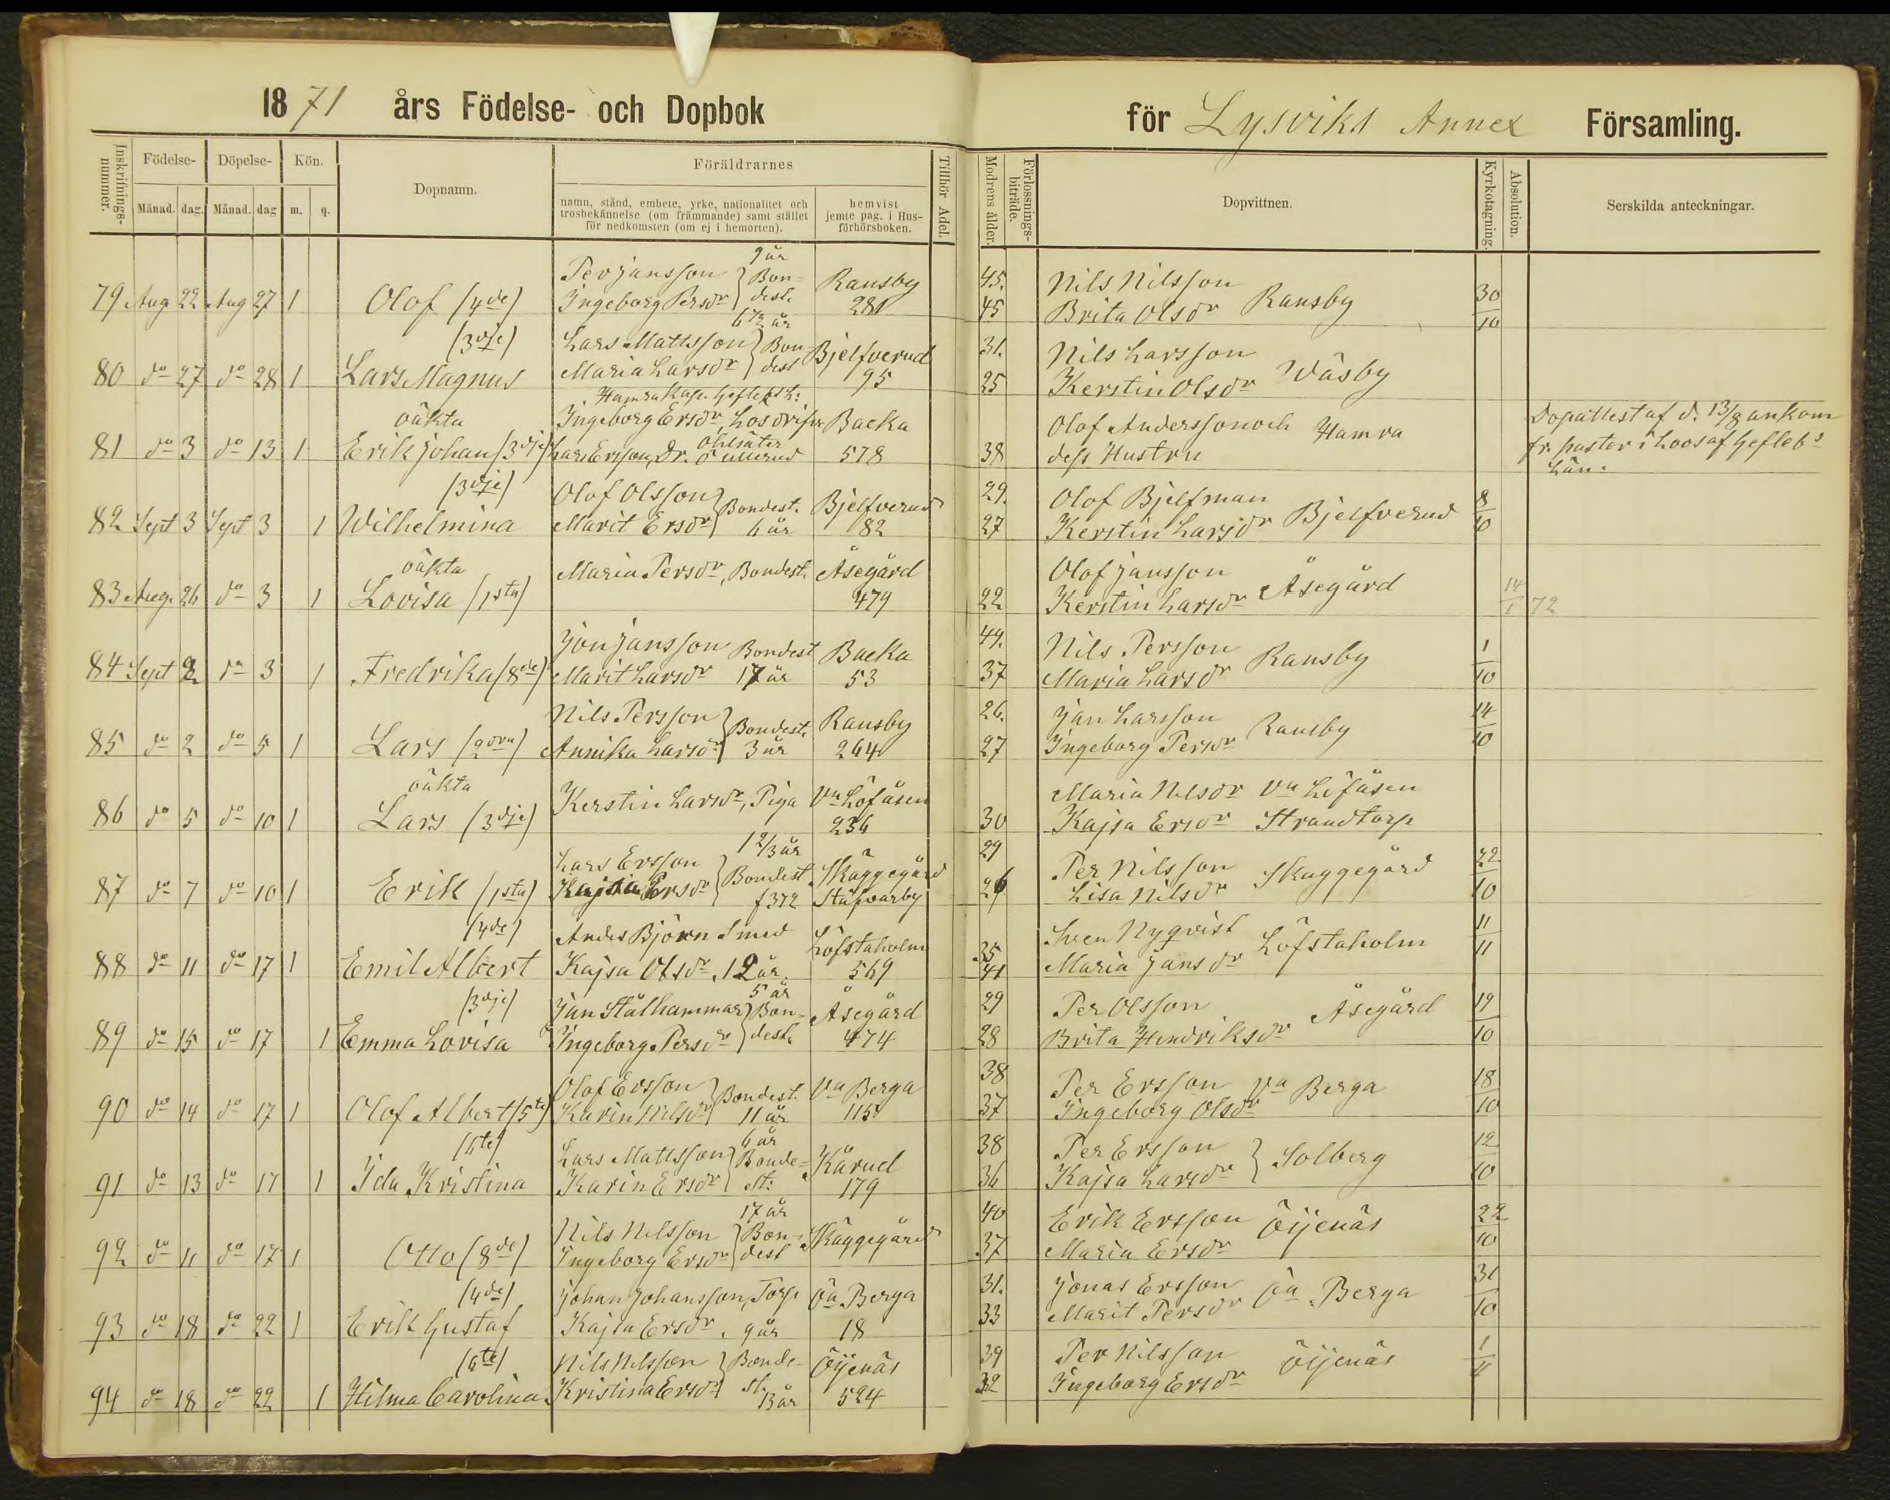 1871 års Födelse- och Dopbok för Lysviks Annex Församling.
Inskrifnings-nummer. Födelse- Döpelse- Kön. Dopnamn. Föräldrarnes Tillhör Adel. Modrens ålder. Förlossnings-biträde. Dopvittnen. Kyrkotagning. Absolution. Serskilda anteckningar.
Månad. dag. Månad. dag m. q.
namn, stånd, embete, yrke, nationalitet och trosbekännelse (om främmande) samt stället för nedkomsten (om ej i hemorten).
hemvist jemte pag. i Hus-förhörsboken.
9 år
Per Jansson } Bon- Ransby 45. Nils Nilsson
79 Aug 22 Aug 27 1 Olof (4de) Ingeborg Persdr dest. 281 45 Brita Olsdr Ransby 30/10
(3dje) Lars Mattsson } Bon- Bjelfverud 31. Nils Larsson
80 do 27 do 28 1 Lars Magnus Maria Larsdr dest 95 25 Kerstin Olsdr Wäsby
Hamra Kap. Gefleb. L:
oäkta Ingeborg Ersdr, Backa Olof Andersson och Hamra Dopattest af d. 13/8 ankom
81 do 3 do 13 1 Erik Johan (3dje) Lars Ersson, Dr. 578 38 dess Hustru fr. pastor i Loos af Gefleb:s
Län.
(3dje) Olof Olsson } Bondest. Bjelfverud 29. Olof Bjelfman 8/10
82 Sept 3 Sept 3 1 Wilhelmina Marit Ersdr 6 år 82 27 Kerstin Larsdr Bjelfverud
oäkta Maria Persdr, Bondest. Åsegård Olof Jansson
83 Aug. 26 do 3 1 Lovisa (1sta) 479 22 Kerstin Larsdr Åsegård 14/1 72
Jon Jansson Bondest Backa 49. Nils Persson
84 Sept 2 do 3 1 Fredrika (8de) Marit Larsdr 17 år 53 37 Maria Larsdr Ransby 1/10
Nils Persson } Bondest. Ransby 26. Jan Larsson
85 do 2 do 5 1 Lars (2dra) Annika Larsdr 3 år 264 27 Ingeborg Persdr Ransby 14/10
oäkta Kerstin Larsdr, Piga Va Löfåsen Maria Nilsdr Va Löfåsen
86 do 5 do 10 1 Lars (3dje) 236 30 Kajsa Ersdr Strandtorp
1 2/3 år
Lars Ersson } Bondest Skäggegård 29 Per Nilsson
87 do 7 do 10 1 Erik (1sta) Kajsa Ersdr f 372 Stäfvarby 26 Lisa Nilsdr Skäggegård 22/10
(4de) Andes Björn Smed Löfstaholm 35 Sven Nyqvist
88 do 11 do 17 1 Emil Albert Kajsa Olsdr, 12 år. 569 41 Maria Jansdr Löfstaholm 11/11
5 år
(3dje) Jan Stålhammar } Bon- Åsegård 29 Per Olsson
89 do 15 do 17 1 Emma Lovisa Ingeborg Persdr dest. 474 28 Brita Hendriksdr Åsegård 19/10
Olof Ersson } Bondest. Va Berga 38 Per Ersson
90 do 14 do 17 1 Olof Albert (5te) Karin Nilsdr 11 år 115 37 Ingeborg Olsdr Va Berga 18/10
6 år
(6te) Lars Mattsson } Bonde- Kärud 38 Per Ersson
91 do 13 do 17 1 Ida Kristina Karin Ersdr st: 179 36 Kajsa Larsdr } Solberg 12/10
17 år
Nils Nilsson } Bon- Skäggegård 40 Erik Ersson
92 do 11 do 17 1 Otto (8de) Ingeborg Ersdr dest 37 Maria Ersdr Öijenäs 22/10
(4de) Johan Johansson, Torp Öa Berga 31. Jonas Ersson
93 do 18 do 22 1 Erik Gustaf Kajsa Ersdr, 9 år 18 33 Marit Persdr Öa Berga 31/10
(6te) Nils Nilsson } Bonde- Öijenäs 39 Per Nilsson
94 do 18 do 22 1 Hilma Carolina Kristina Ersdr st. 13 år 524 32 Ingeborg Ersdr Öijenäs 1/11